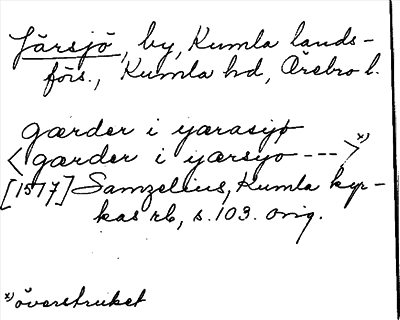 Järsjö, by, Kumla lands-
förs., Kumla hd, Örebro l.
gærder i yærasyø
<gærder i yærsyo --->x)
[1577] Samzelius, Kumla kyr-
kas rb, s. 103. orig.
x) överstruket